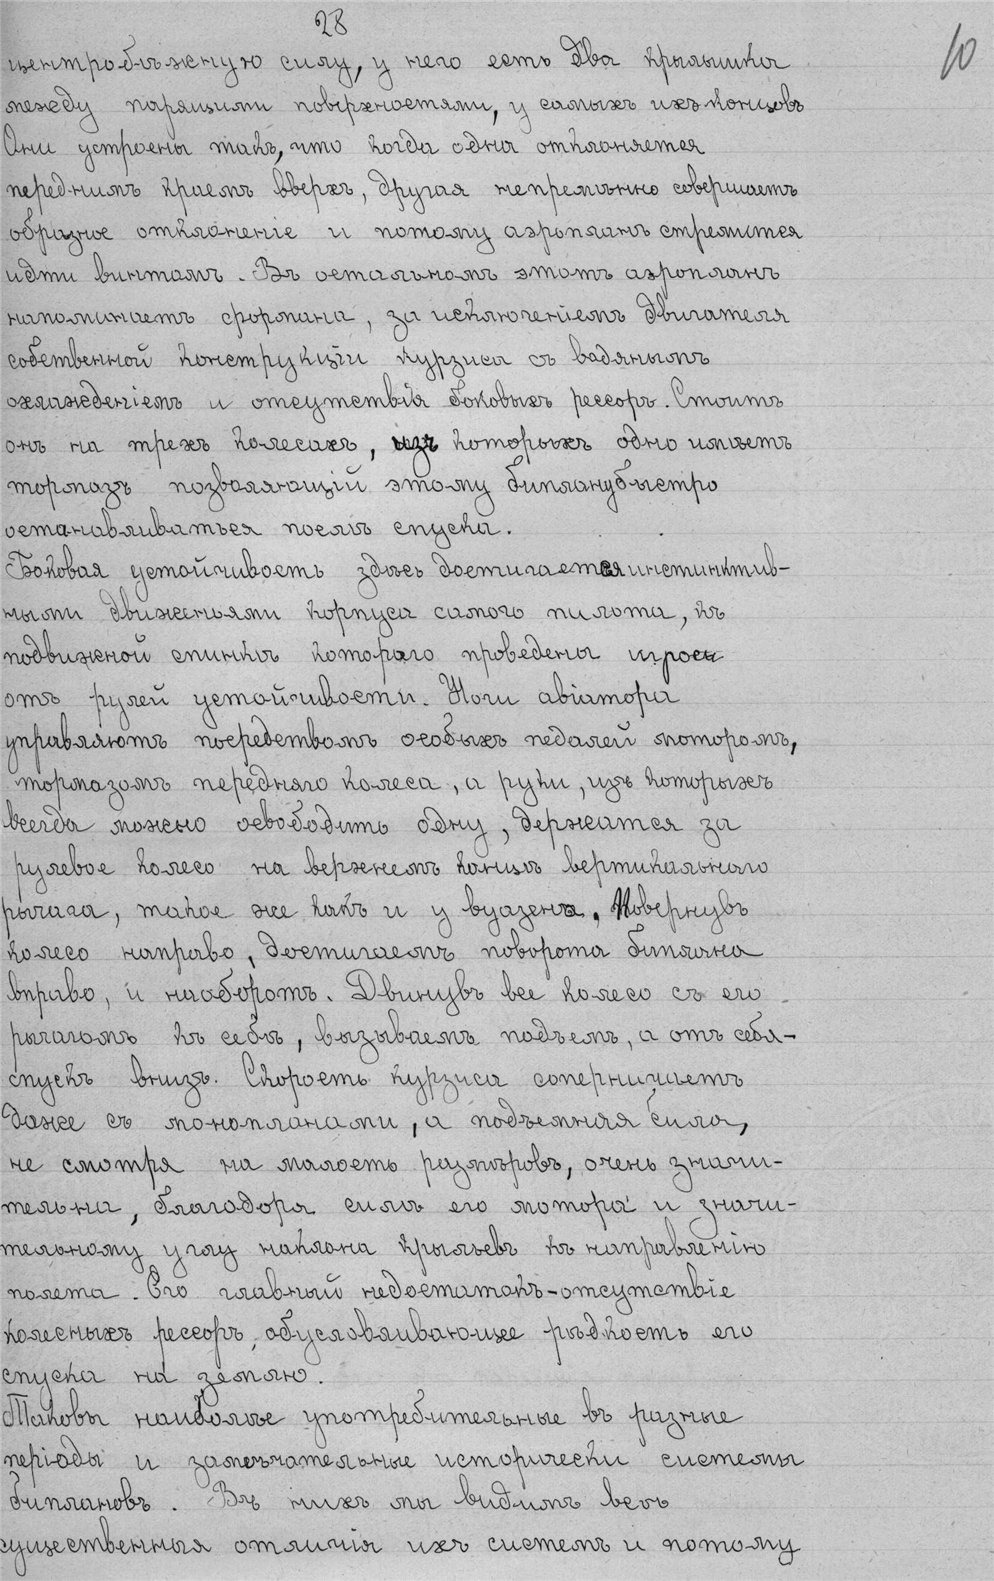 28
10
центробѣжную силу, у него есть два крылышка
между парящими поверхностями, у самыхъ ихъ концовъ
Они устроены такъ, что когда одна отклоняется
переднимъ краемъ вверхъ, другая непремѣнно совершаетъ
образное отклоненіе и потому аэропланъ стремится
идти винтомъ. Въ остальномъ этотъ аэропланъ
напоминаетъ формана, за исключеніемъ двигателя
собственной конструкціи курзиса съ вадянымъ
охлажденіемъ и отсутствія боковыхъ рессоръ. Стоитъ
онъ на трехъ колесахъ, изъ которыхъ одно имѣетъ
тормазъ позваляющій этому биплану быстро
останавливаться послѣ спуска.
Боковая устойчивость здѣсь достигается инстинктив-
ными движеньями корпуса самого пилота, къ
подвижной спинкѣ котораго проведены
отъ рулей устойчивости. Ноги авіатора
управляютъ посредствомъ особыхъ педалей моторомъ,
тормазомъ передняго колеса, а руки, изъ которыхъ
всегда можно освободить одну, держатся за
рулевое колесо на верхнемъ концѣ вертикальнаго
рычага, такое же какъ и у вуазена. Повернувъ
колесо направо, достигаемъ поворота биплана
вправо, и наоборотъ. Двинувъ все колесо съ его
рычагомъ къ себѣ, вызываемъ подъемъ, а отъ себя-
спускъ внизъ. Скорость курзиса соперничаетъ
даже съ монопланами, а подъемная сила,
не смотря на малость размѣровъ, очень значи-
тельна, благодоря силѣ его мотора и значи-
тельному углу наклона крыльевъ къ направленію
полета. Его главный недостатокъ-отсутствіе
колесныхъ рессоръ, обусловливающее рѣдкость его
спуска на землю.
Таковы наиболѣе употребительные въ разные
періоды и замѣчательные исторически системы
биплановъ. Въ нихъ мы видимъ всѣ
существенныя отличія ихъ системъ и потому